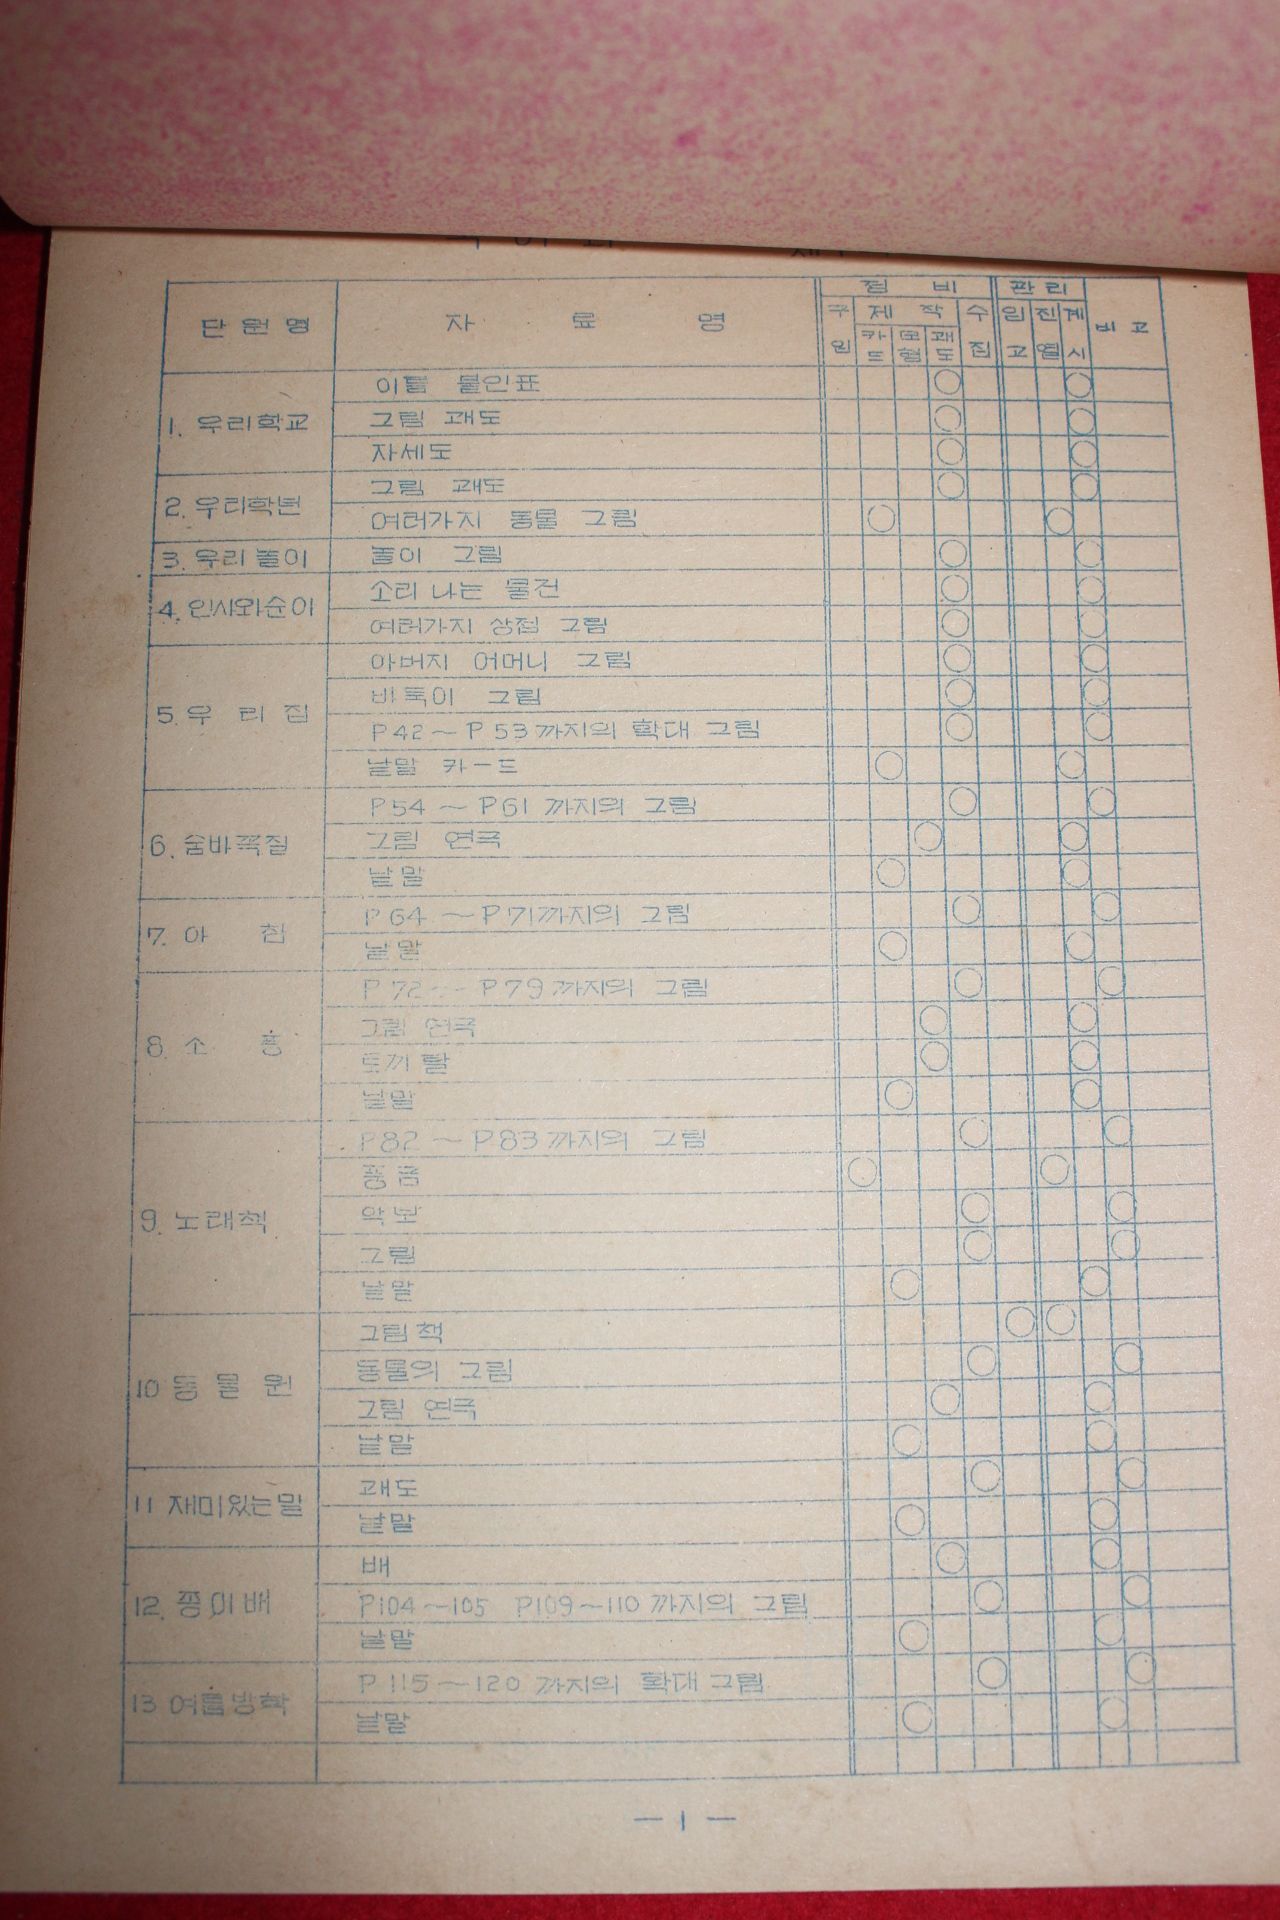 단원명 자료명 정비 관리 비고
구입 제작 수집 입고 진열 게시
카드 모형 괘도
1. 우리학교 이름 붙인표
그림 괘도
자세도
2. 우리학년 그림 괘도
여러가지 동물 그림
3. 우리놀이 놀이 그림
4. 인시와순이 소리 나는 물건
여러가지 상점 그림
5. 우리집 아버지 어머니 그림
바둑이 그림
P42~P53까지의 확대 그림
낱말 카-드
6. 숨바꼭질 P54~P61까지의 그림
그림 연극
낱말
7. 아침 P64~P71까지의 그림
낱말
8. 소풍 P72~P79까지의 그림
그림 연극
토끼 탈
낱말
9. 노래책 P82~P83까지의 그림
풍금
악보
그림
낱말
10 동물원 그림책
동물의 그림
그림 연극
낱말
11 재미있는말 괘도
낱말
12. 종이배 배
P104~105 P109~110까지의 그림
낱말
13 여름방학 P115~120까지의 확대 그림
낱말
— 1 —